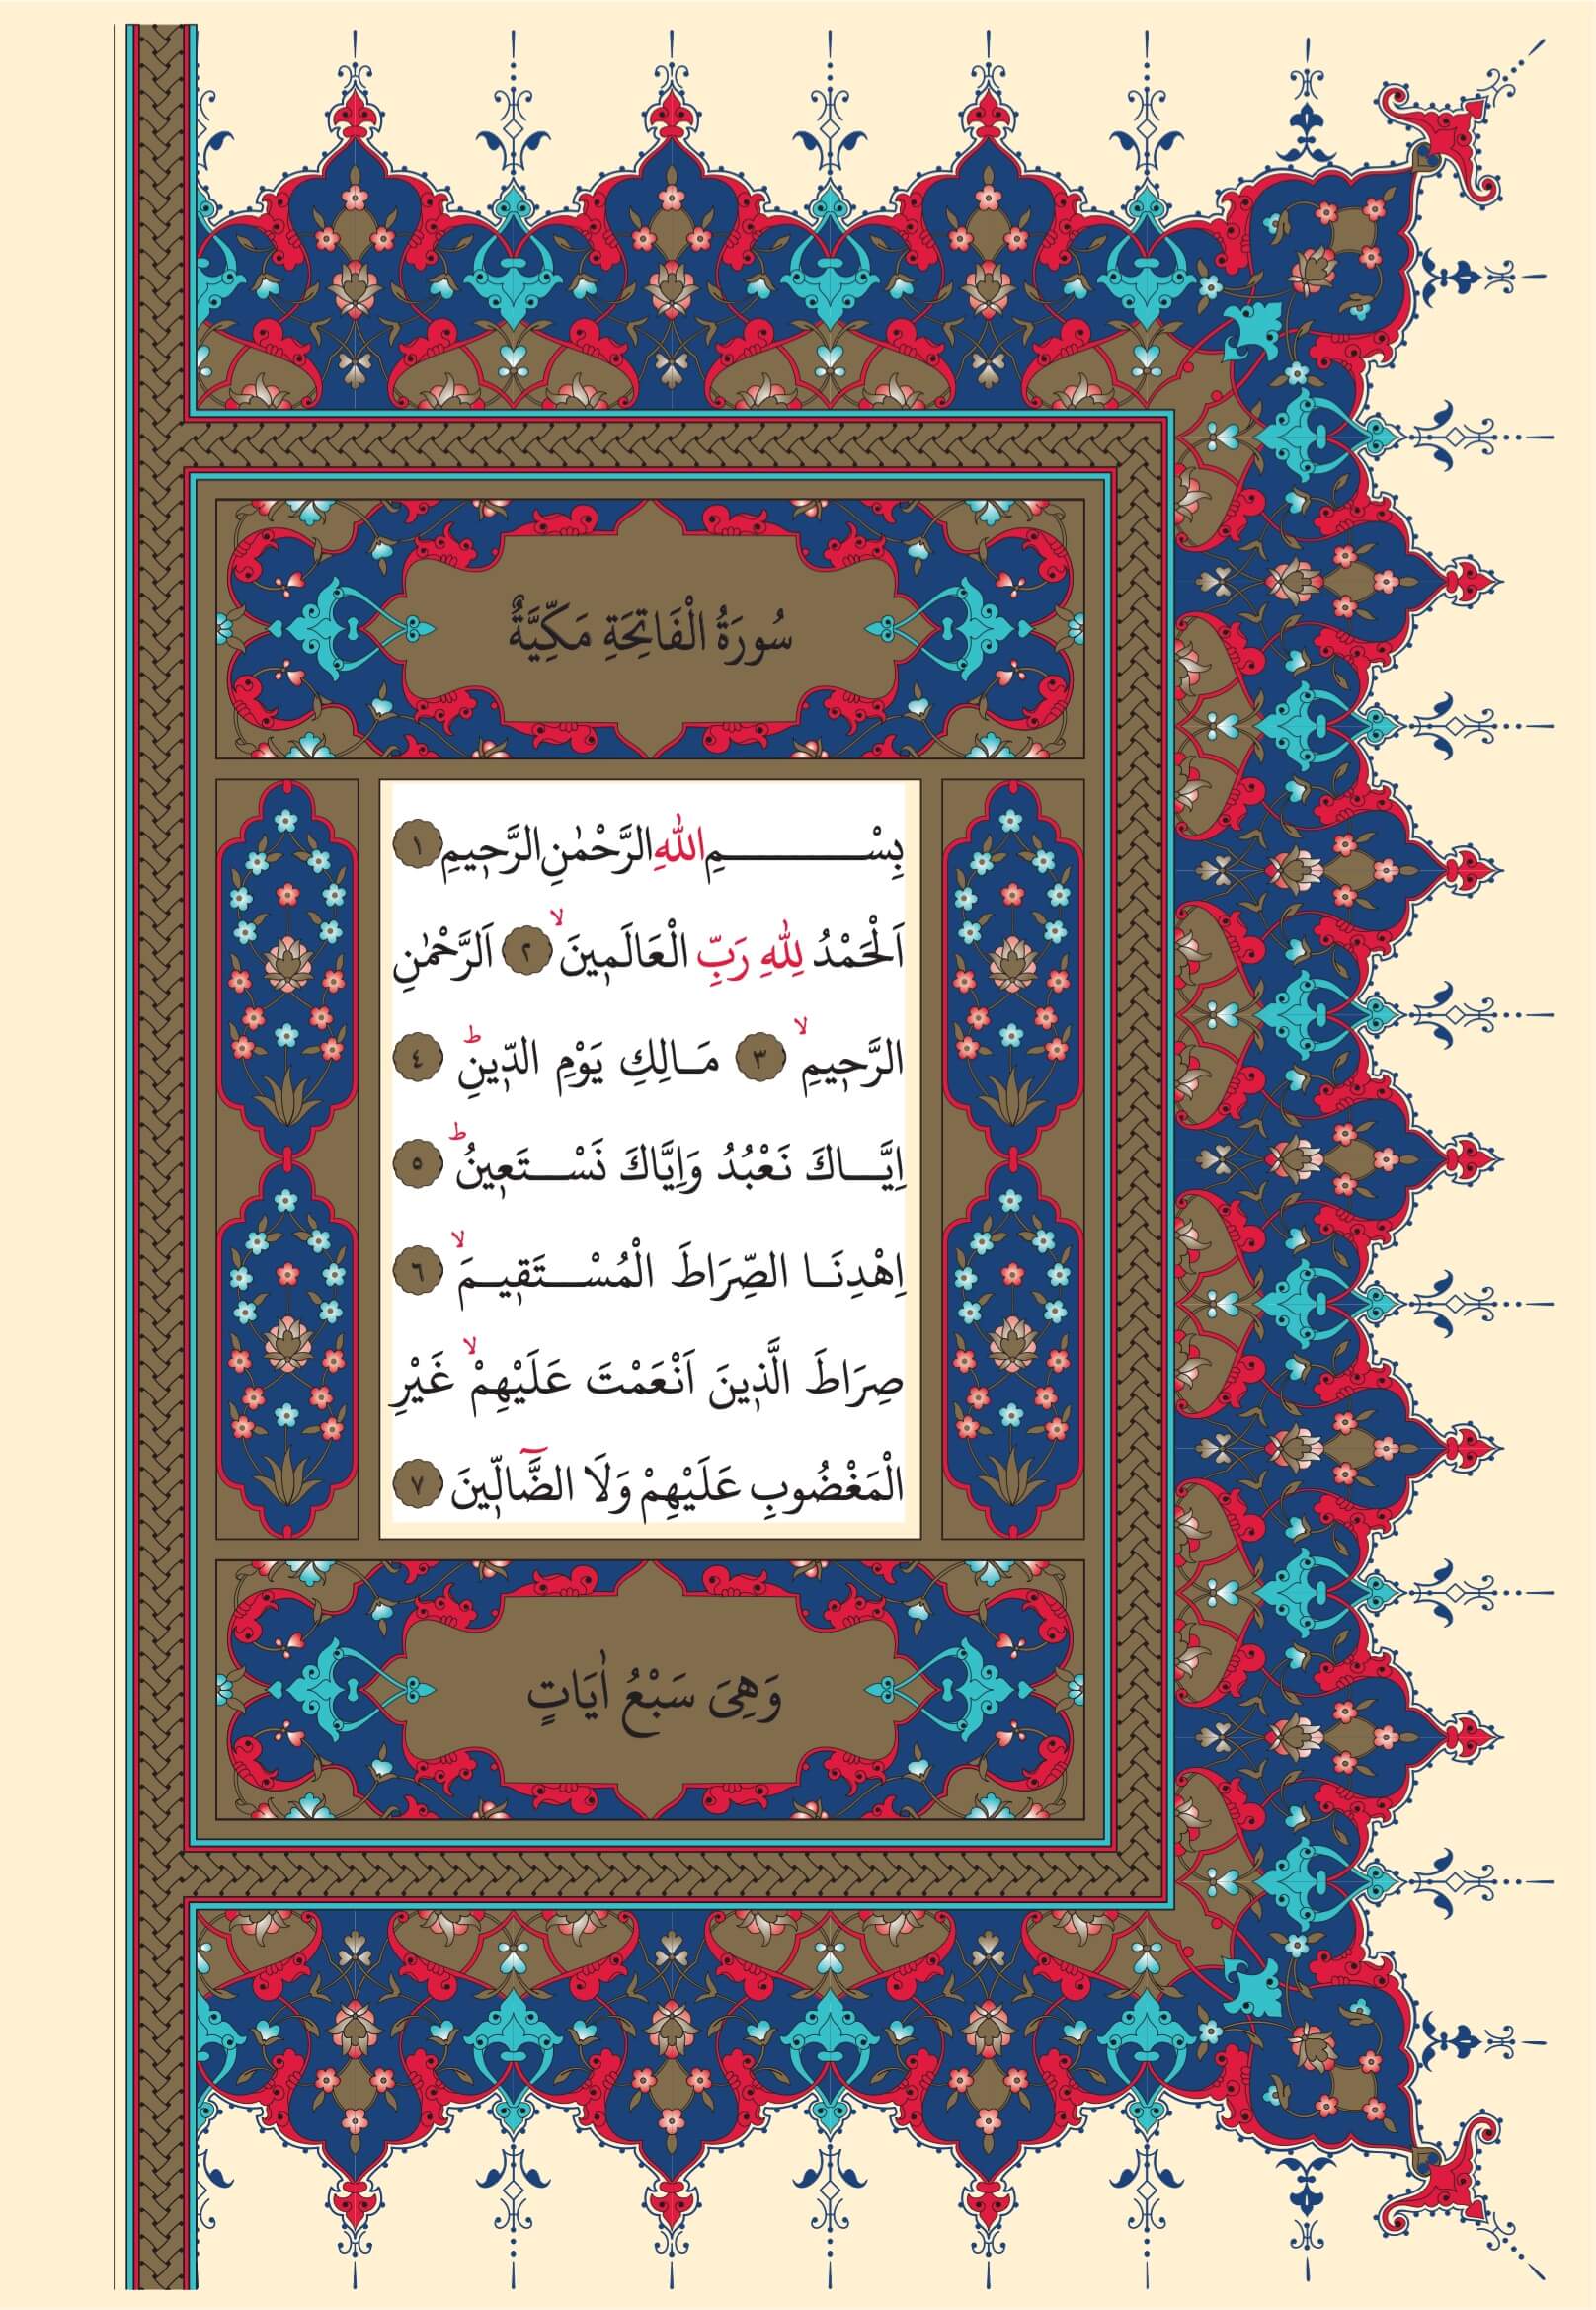 سُورَةُ الْفَاتِحَةِ مَكِّيَّةٌ
بِسْــــــــــمِ اللّٰهِ الرَّحْمٰنِ الرَّح۪يمِ ١
اَلْحَمْدُ لِلّٰهِ رَبِّ الْعَالَم۪ينَۙ ٢ اَلرَّحْمٰنِ
الرَّح۪يمِۙ ٣ مَـالِكِ يَوْمِ الدّ۪ينِۜ ٤
اِيَّـــاكَ نَعْبُدُ وَاِيَّاكَ نَسْــتَع۪ينُۜ ٥
اِهْدِنَــا الصِّرَاطَ الْمُسْــتَق۪يـمَۙ ٦
صِرَاطَ الَّذ۪ينَ اَنْعَمْتَ عَلَيْهِمْۙ غَيْرِ
الْمَغْضُوبِ عَلَيْهِمْ وَلَا الضَّٓالّ۪ينَ ٧
وَهِىَ سَبْعُ اٰيَاتٍ